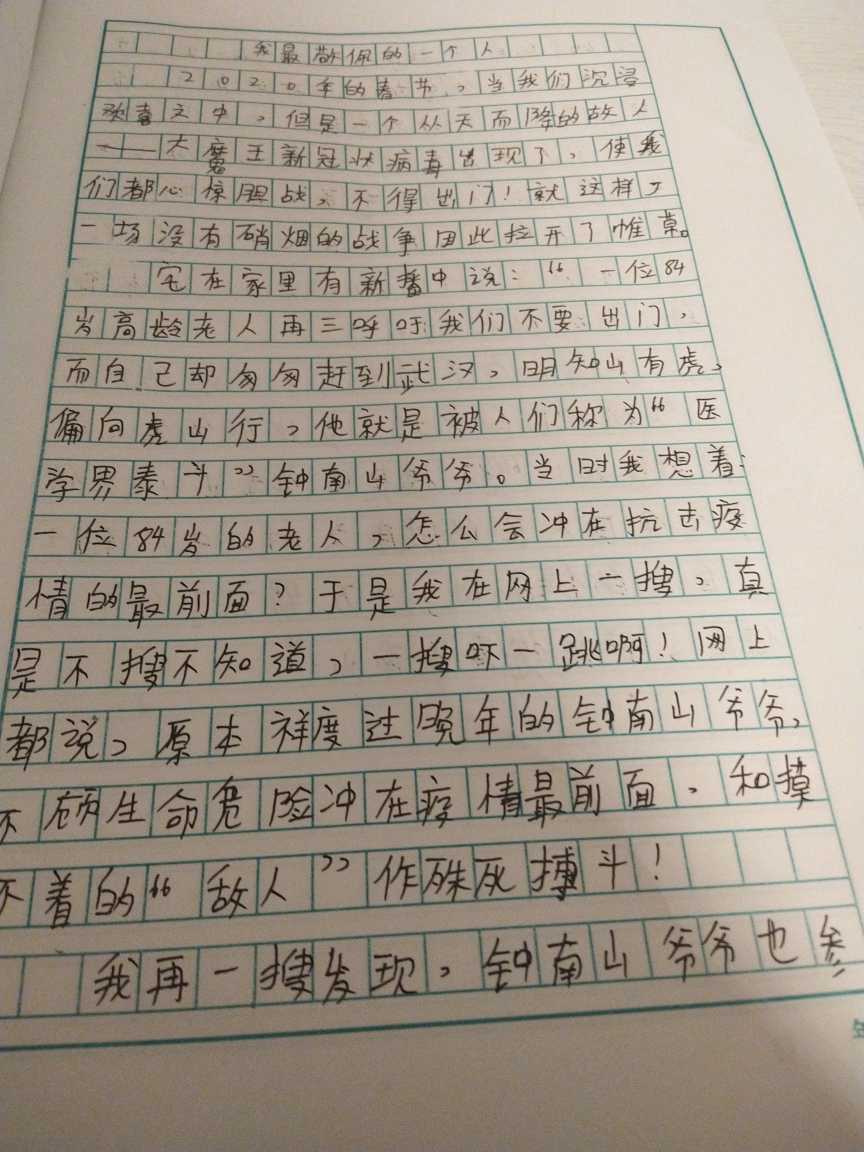 我最敬佩的一个人
2020年的春节，当我们沉浸
欢喜之中，但是一个从天而降的敌人
——大魔王新冠状病毒出现了，使我
们都心惊胆战，不得出门！就这样，
一场没有硝烟的战争因此拉开了帷幕。
宅在家里有新播中说：“一位84
岁高龄老人再三呼吁我们不要出门，
而自己却匆匆赶到武汉，明知山有虎，
偏向虎山行，他就是被人们称为“医
学界泰斗”钟南山爷爷。当时我想着：
一位84岁的老人，怎么会冲在抗击疫
情的最前面？于是我在网上一搜，真
是不搜不知道，一搜吓一跳啊！网上
都说，原本祥度过晚年的钟南山爷爷，
不顾生命危险冲在疫情最前面，和摸
不着的“敌人”作殊死搏斗！
我再一搜发现，钟南山爷爷也参